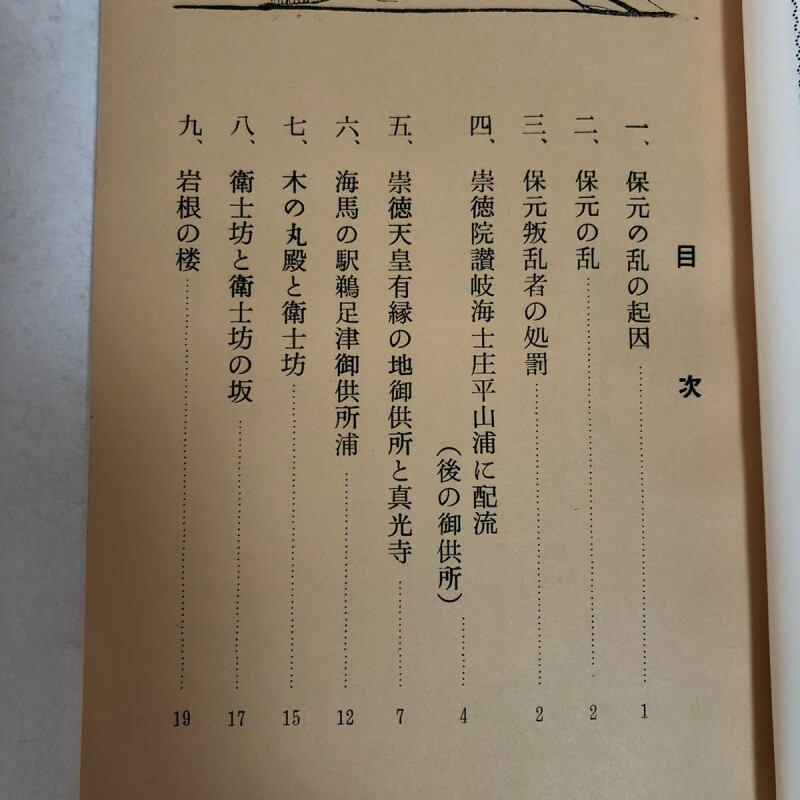 目次
一、保元の乱の起因 1
二、保元の乱 2
三、保元叛乱者の処罰 2
四、崇徳院讃岐海士庄平山浦に配流
(後の御供所) 4
五、崇徳天皇有縁の地御供所と真光寺 7
六、海馬の駅鵜足津御供所浦 12
七、木の丸殿と衛士坊 15
八、衛士坊と衛士坊の坂 17
九、岩根の楼 19